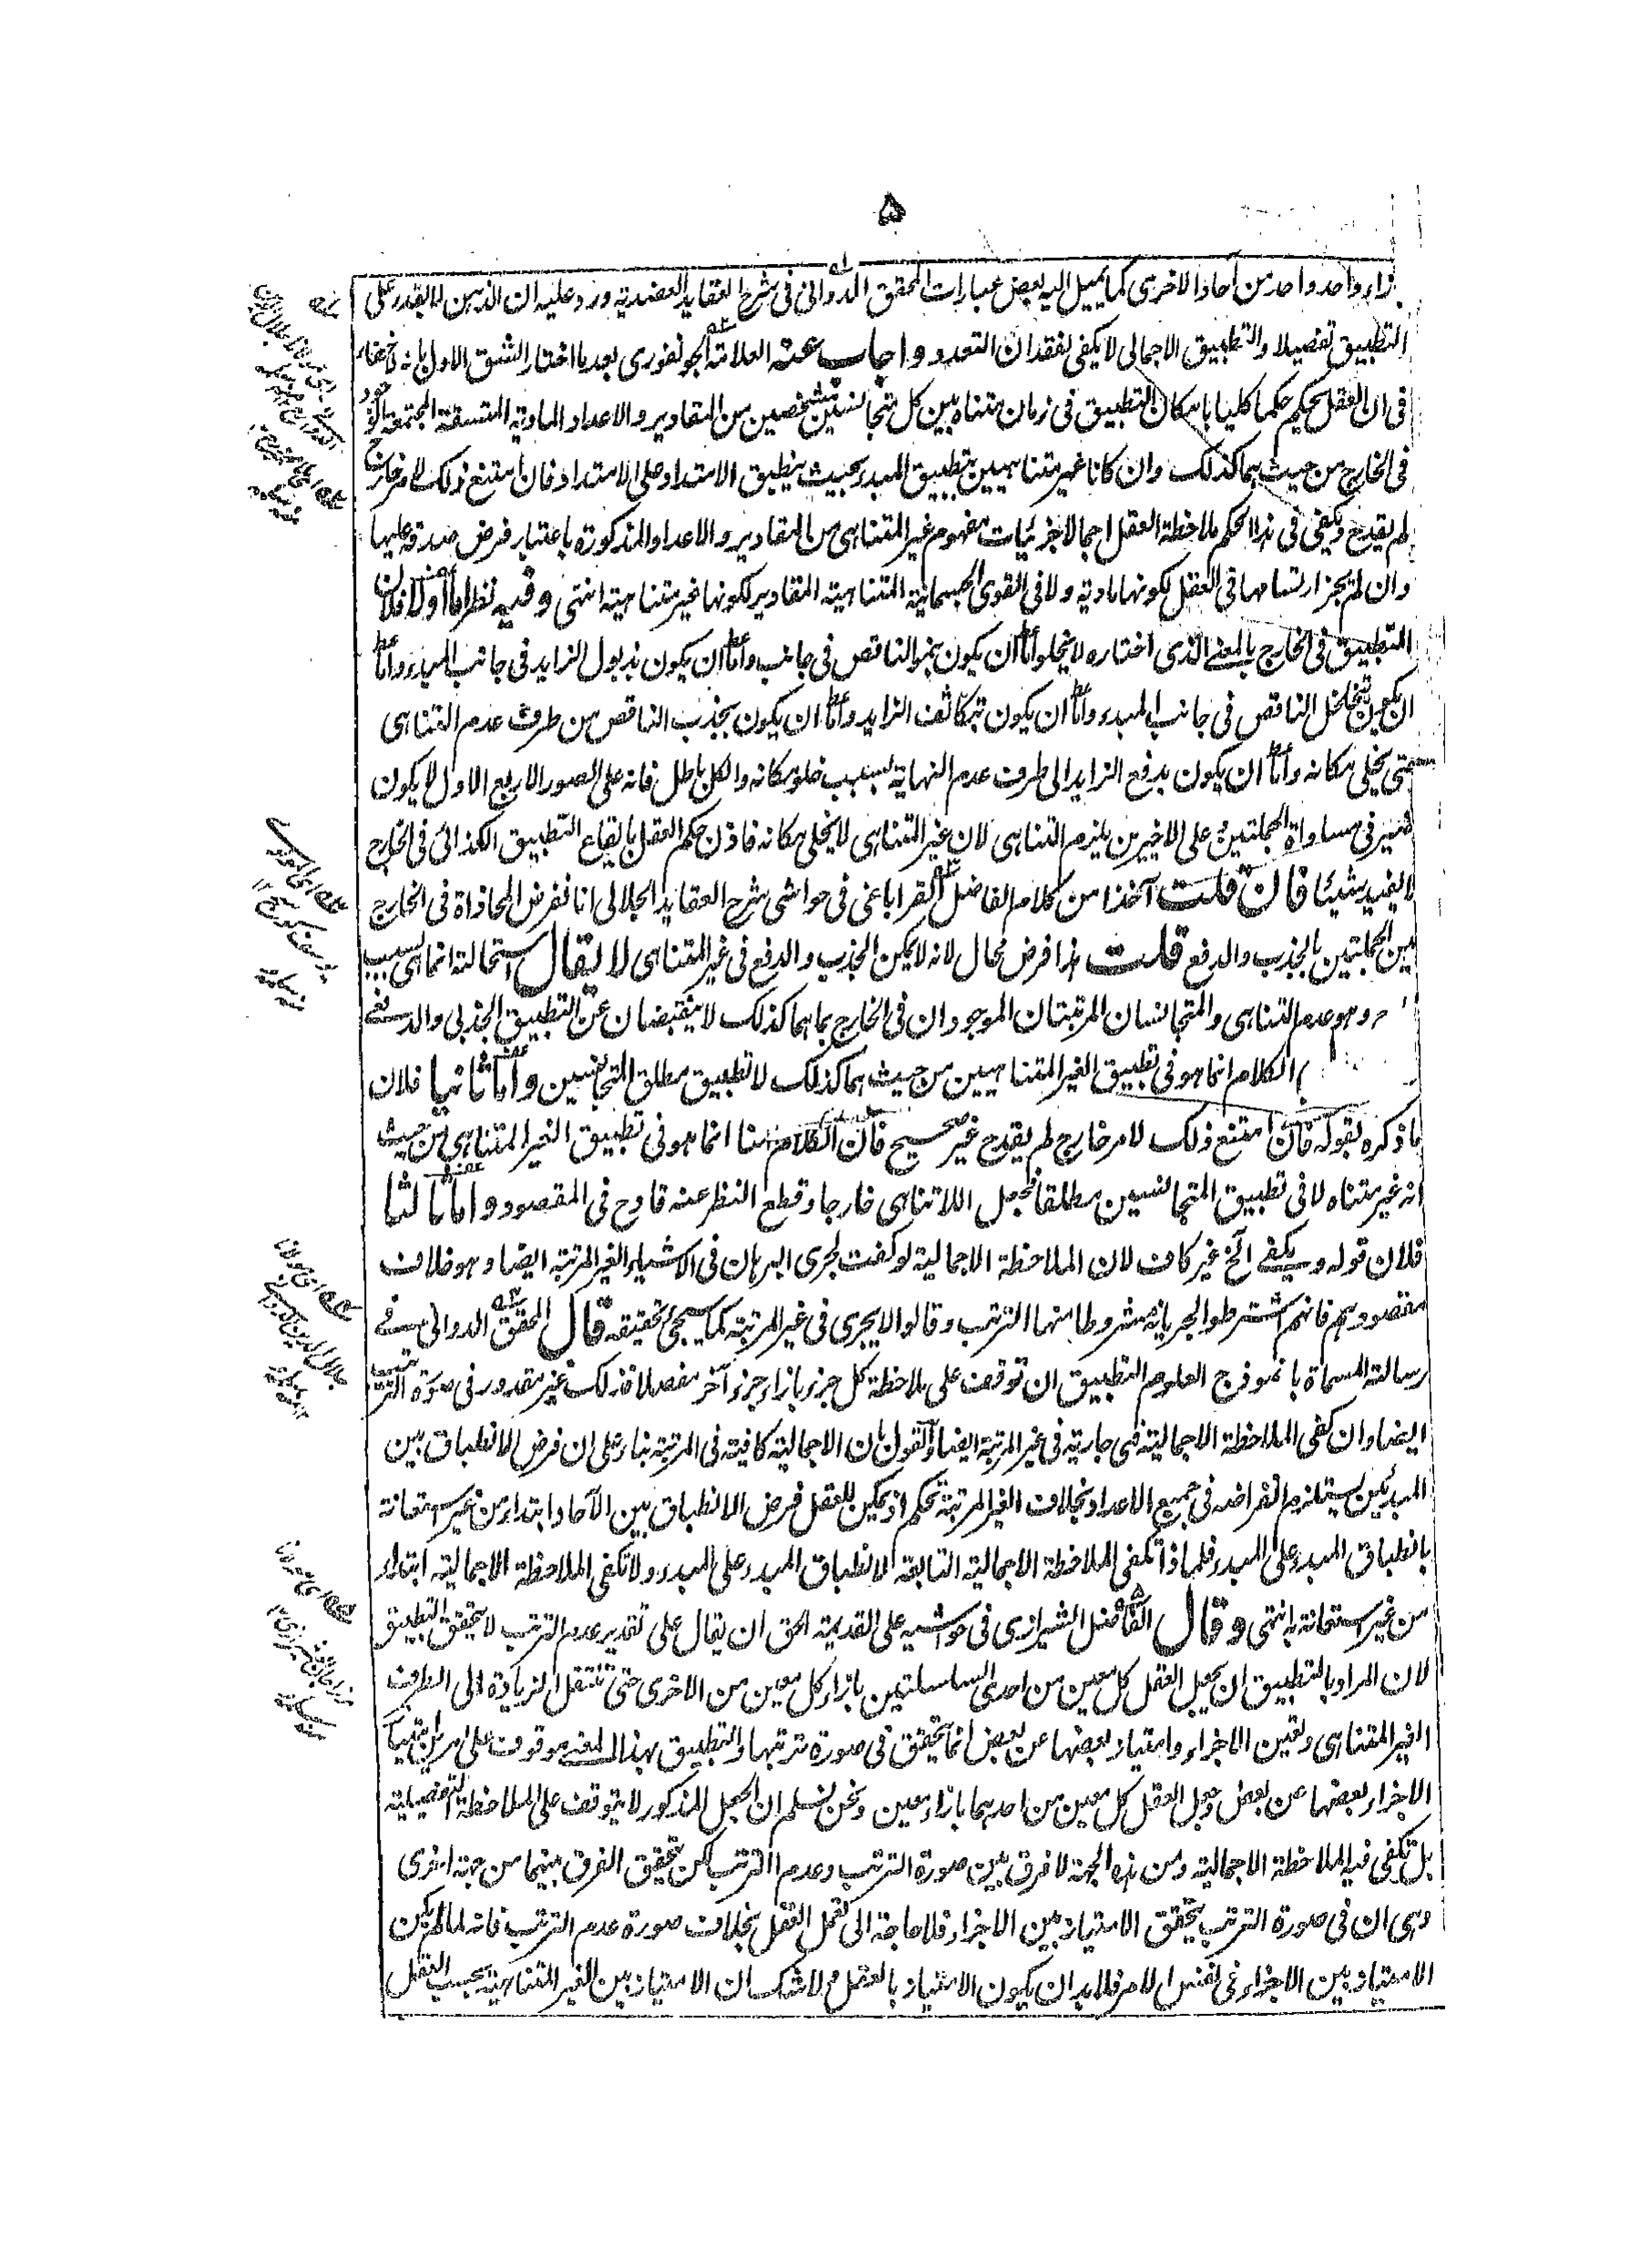 ۵
بازاء واحد واحد من آحاد الاخرى كما يميل اليه بعض عبارات المحقق الدوانى فى شرح العقايد العضدية ورد عليه ان الذهن لا يقدر على
التطبيق تفصيلا والتطبيق الاجمالى لا يكفى لفقدان التعدد واجاب عنه العلامة الجونفورى بعد ما اختار الشق الاول بانه لا خفاء
فى ان العقل يحكم حكما كليا بامكان التطبيق فى زمان متناه بين كل متجانسين متشخصين من المقادير والاعداد المادية المتسقة المجتمعة الوجود
فى الخارج من حيث هما كذلك وان كانا غير متناهيين بتطبيق المبدء بحيث ينطبق الامتداد على الامتداد فان امتنع ذلك لامر خارج
لم يقدح ويكفى فى هذا الحكم ملاحظة العقل اجمالا جزئيات مفهوم غير المتناهى من المقادير والاعداد المذكورة باعتبار فرض صدقه عليها
وان لم يجز ارتسامها فى العقل لكونها مادية ولا فى القوى الجسمانية المتناهية المقادير لكونها غير متناهية انتهى وفيه نظر اما اولا فلان
التطبيق فى الخارج بالمعنے الذى اختاره لا يخلو اما ان يكون بنمو الناقص فى جانب واما ان يكون بذبول الزايد فى جانب المبدء واما
ان يكون بتخلخل الناقص فى جانب المبدء واما ان يكون بتكاثف الزايد واما ان يكون بجذب الناقص من طرف عدم التناهى
حتى يخلى مكانه واما ان يكون بدفع الزايد الى طرف عدم النهاية بسبب خلو مكانه والكل باطل فانه على الصور الاربع الاول لا يكون
فى مساواة الجملتين وعلى الاخيرين يلزم التناهى لان غير المتناهى لا يخلى مكانه فاذن حكم العقل بايقاع التطبيق الكذائى فى الخارج
لا يفيد شيئا فان قلت آخذا من كلام الفاضل القراباغى فى حواشى شرح العقايد الجلالى انا نفرض المحاذاة فى الخارج
بين الجملتين بالجذب والدفع قلت هذا فرض محال لانه لا يمكن الجذب والدفع فى غير المتناهى لا يقال استحالته انما هى بسبب
وهو عدم التناهى والمتجانسان المرتبتان الموجودان فى الخارج بما هما كذلك لا ينقبضان عن التطبيق الجذبى والدفعے
الكلام انما هو فى تطبيق الغير المتناهيين من حيث هما كذلك لا تطبيق مطلق المتجانسين واما ثانيا فلان
ما ذكره بقوله فان امتنع ذلك لامر خارج لم يقدح غير صحيح فان الكلام هنا انما هو فى تطبيق الغير المتناهى من حيث
انه غير متناه لا فى تطبيق المتجانسين مطلقا فجعل اللاتناهى خارجا وقطع النظر عنه قادح فى المقصود واما ثالثا
فلان قوله ويكفى آلخ غير كاف لان الملاحظة الاجمالية لو كفت لجرى البرهان فى الاشياء الغير المرتبة ايضا وهو خلاف
مقصودهم فانهم اشترطوا لجريانه شروطا منها الترتب وقالوا لا يجرى فى غير المرتبة كما سيجئ تحقيقه قال المحقق الدوانى فے
رسالته المسماة بانموذج العلوم التطبيق ان توقف على ملاحظة كل جزء بازاء جزء آخر مفصلا فذلك غير مقدور فى صورة الترتيب
ايضا وان كفى الملاحظة الاجمالية فهى جارية فى غير المرتبة ايضا والقول بان الاجمالية كافية فى المرتبة بناء على ان فرض الانطباق بين
المبدئين يستلزم انفراضه فى جميع الاعداد بخلاف الغير المرتبة تحكم اذ يمكن للعقل فرض الانطباق بين الآحاد ابتداء من غير استعانة
بانطباق المبدء على المبدء فلماذا تكفى الملاحظة الاجمالية التابعة لانطباق المبدء على المبدء ولا تكفى الملاحظة الاجمالية ابتداء
من غير استعانة به انتهى وقال الفاضل الشيرازى فى حواشيه على القديمة الحق ان يقال على تقدير عدم الترتب لا يتحقق التطبيق
لان المراد بالتطبيق ان يجعل العقل كل معين من احدى السلسلتين بازاء كل معين من الاخرى حتى تنتقل الزيادة الى الطرف
الغير المتناهى وتعين الاجزاء وامتياز بعضها عن بعض انما يتحقق فى صورة ترتبها والتطبيق بهذا المعنے موقوف على امرين امتياز
الاجزاء بعضها عن بعض وجعل العقل كل معين من احدهما بازاء معين ونحن نسلم ان الجعل المذكور لا يتوقف على الملاحظة التفصيلية
بل تكفى فيه الملاحظة الاجمالية ومن هذه الجهة لا فرق بين صورة الترتب وعدم الترتب لكن تحقق الفرق بينهما من جهة اخرى
وهى ان فى صورة الترتب يتحقق الامتياز بين الاجزاء فلا حاجة الى تعمل العقل بخلاف صورة عدم الترتب فانه لما لم يكن
الامتياز بين الاجزاء فى نفس الامر فلا بد ان يكون الامتياز بالعقل ولا شك ان الامتياز بين الغير المتناهية بحسب العقل